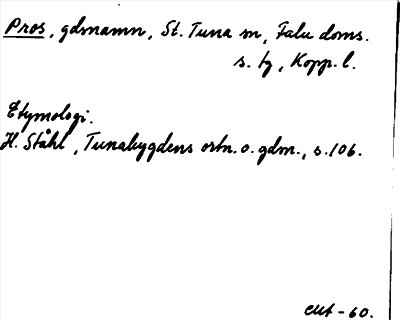 Pros, gdmnamn, St. Tuna sn, Falu doms.
s. tg, Kopp. l.
Etymologi.
H. Ståhl, Tunabygdens ortn. o. gdm., s. 106.
-60.